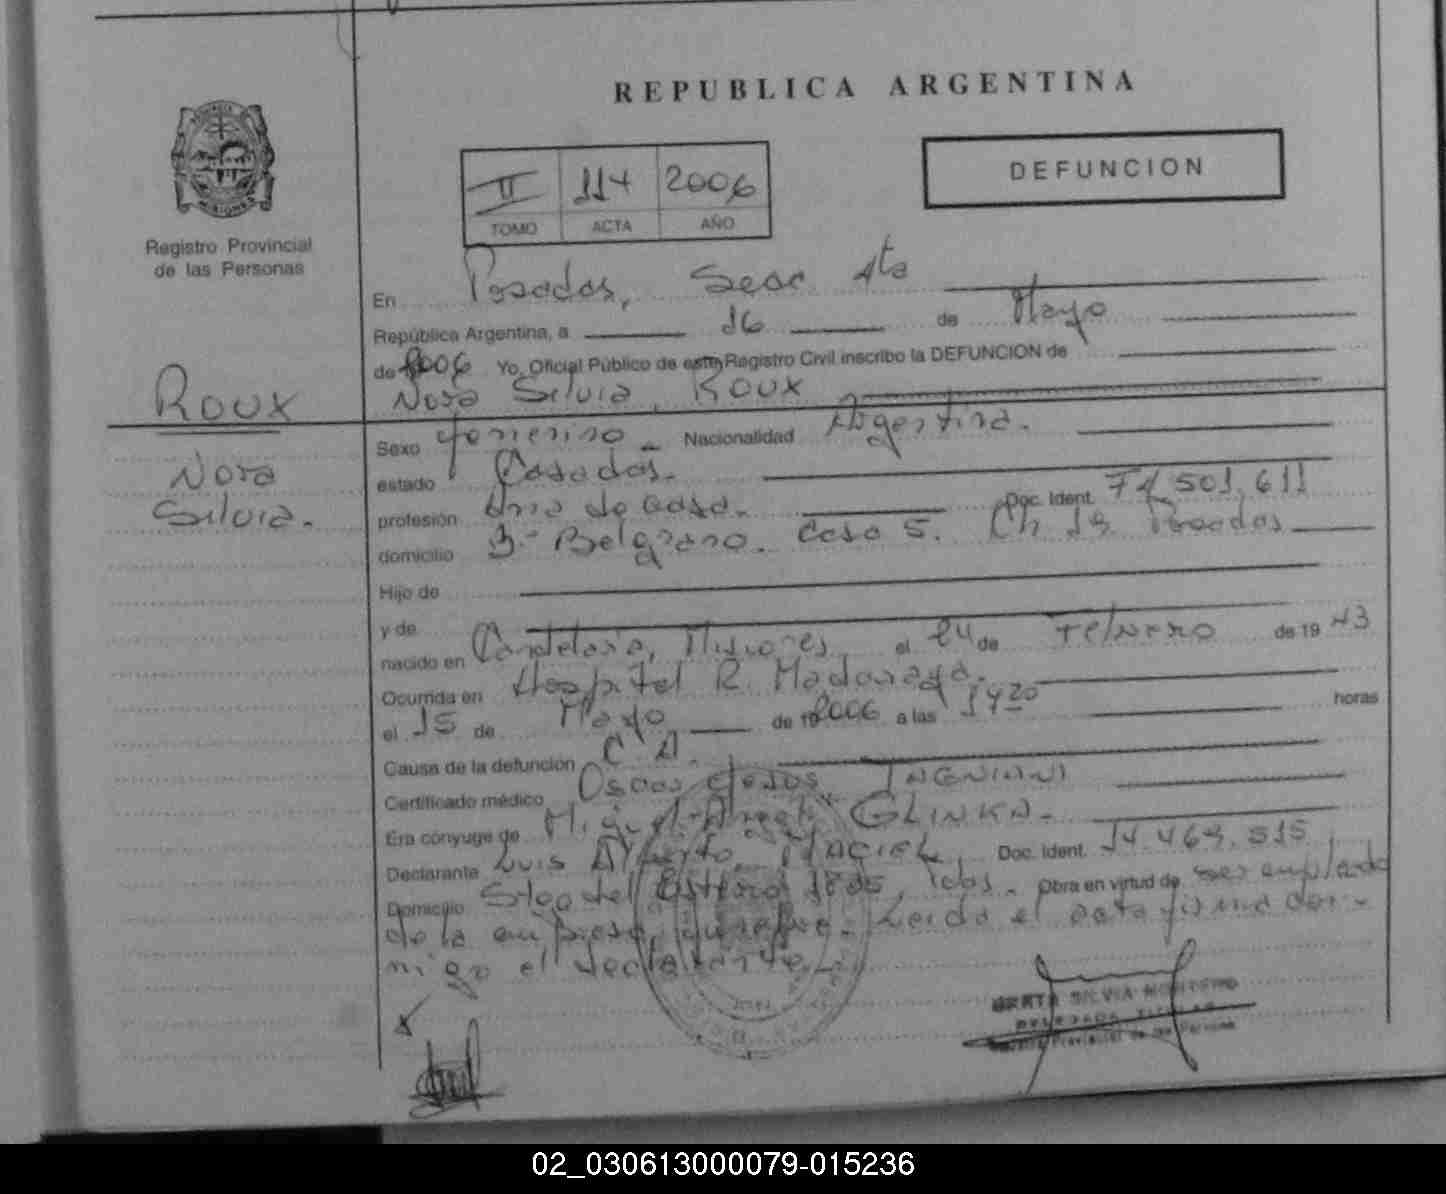 REPUBLICA ARGENTINA
DEFUNCION
II 114 2006
TOMO ACTA AÑO
Registro Provincial
de las Personas
En Posadas, Secc 4ta
República Argentina, a 16 de Mayo
de 2006 Yo, Oficial Público de este Registro Civil inscribo la DEFUNCION de
Nora Silvia, ROUX
ROUX
Nora
Silvia.
Sexo femenino Nacionalidad Argentina.
estado Casada.
profesión Ama de Casa. Doc. Ident. 501.611
domicilio Bº Belgrano. Casa 5. Ch Posadas
Hijo de
y de
nacido en Candelaria, Misiones el 24 de Febrero de 19 43
Ocurrida en Hospital R. Madariaga.
el 15 de Mayo de 2006 a las 14 20 horas
Causa de la defunción
Certificado médico Oscar Jesus, INGENIANI
Era cónyuge de Miguel Angel GLINKA.
Declarante Luis Alberto MACIEL, Doc. Ident. 14.469.515
Domicilio Stgo del Estero Pdas. Obra en virtud de ser empleado
de la empresa funebre. Leida el acta firma con-
migo el declarante.
SILVIA MONTERO
DELEGADA TITULAR
Registro Provincial de las Personas
02_030613000079-015236